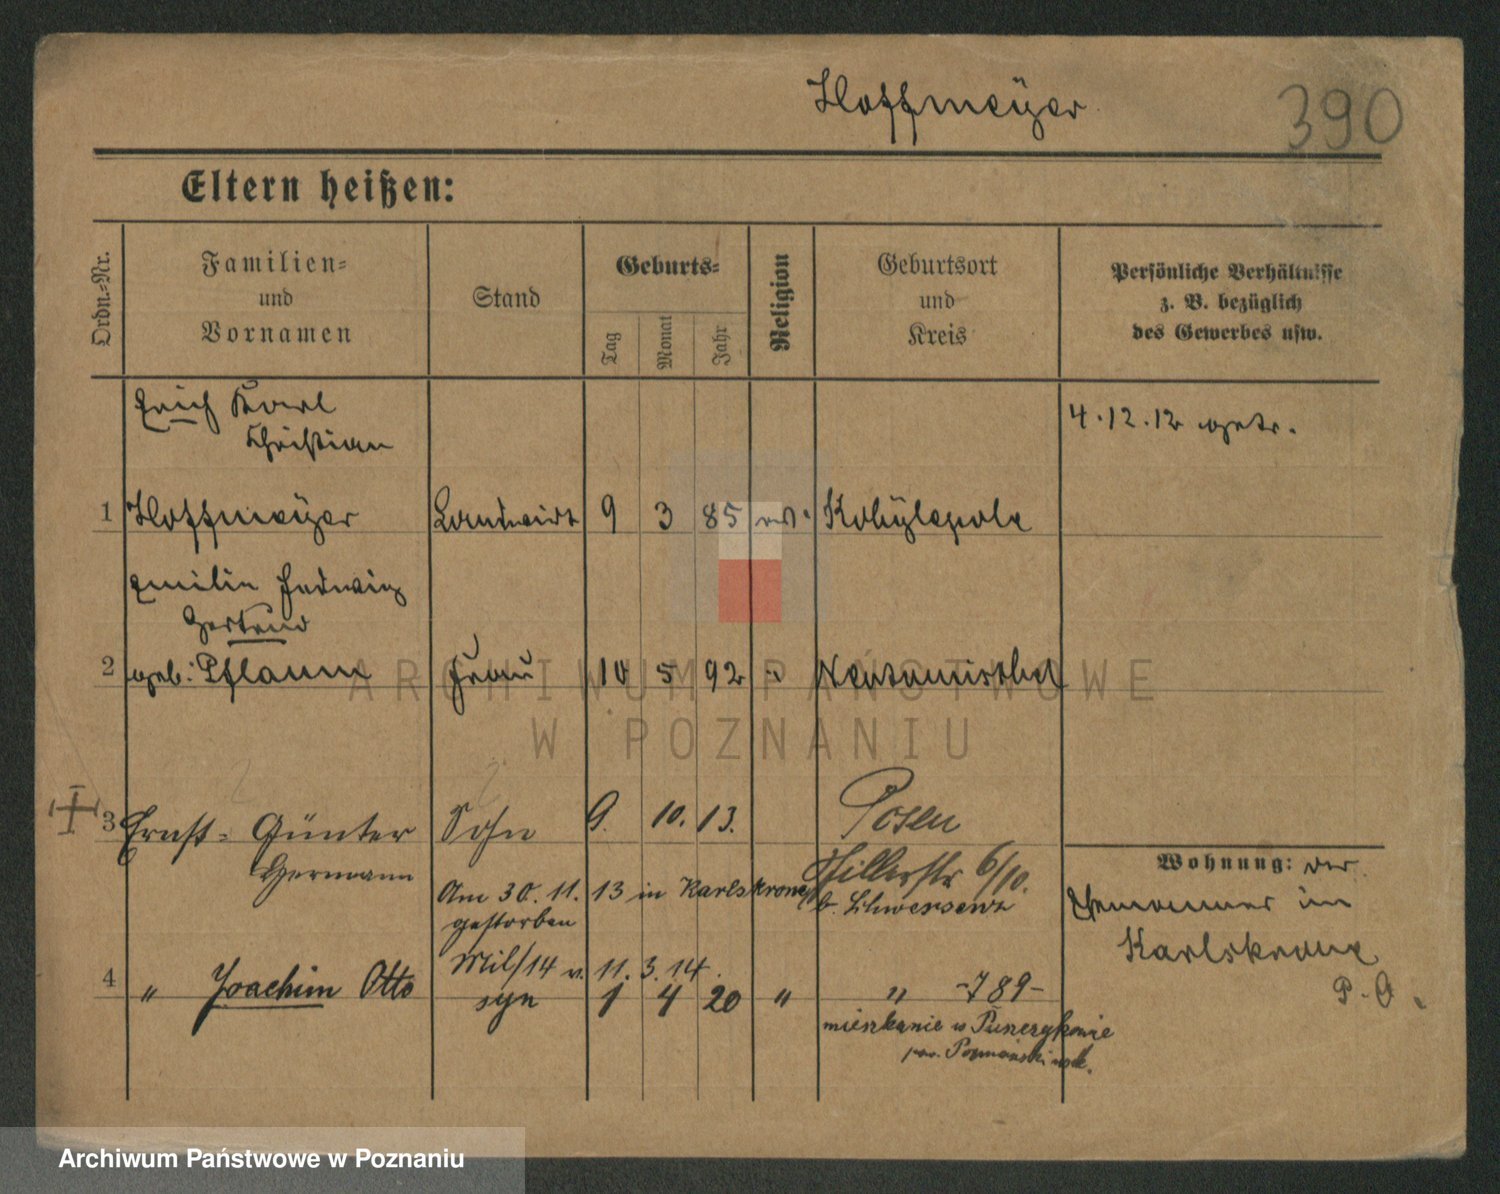 Hoffmeÿer
390
Eltern heißen:
Ordn.-Nr.
Familien-
und
Vornamen
Stand
Geburts-
Tag
Monat
Jahr
Religion
Geburtsort
und
Kreis
Persönliche Verhältnisse
z. B. bezüglich
des Gewerbes usw.
Erich Karl
Christian
4.12.12 getr.
1 Hoffmeÿer Landwirt 9 3 85 Kobÿlepole
Emilie Hedwig
Gertrud
2 geb. Pflaum Frau 10 5 92 " Neutomischel
3 Ernst- Günter Sohn 9. 10. 13. Posen
Hermann
Hillerstr 6/10.
b. Schwersenz
Am 30. 11. 13 in Karlskrone
gestorben
Wohnung: der
Ehemänner in
Karlskrone
P. O
Mil/14 v. 11. 3. 14.
4 " Joachim Otto syn 1 4 20 " " -789-
mieszkanie w
pow. Poznański
ARCHIWUM PAŃSTWOWE
W POZNANIU
Archiwum Państwowe w Poznaniu